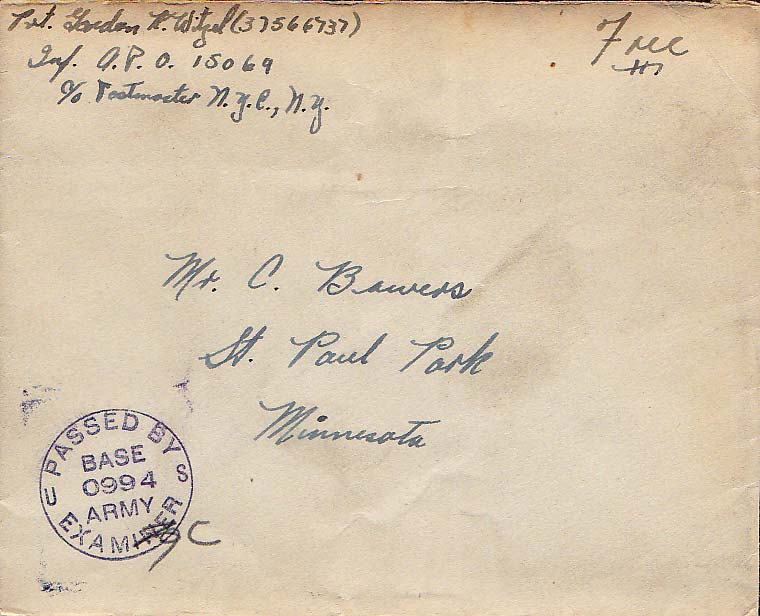 Pvt. Gordon H. Witzel (37566737)
Free
Inf. A.P.O. 15069
c/o Postmaster N.Y.C., N.Y.
Mr. C. Bowers
St. Paul Park
Minnesota
PASSED BY
BASE
0994
ARMY
EXAMINER
U S